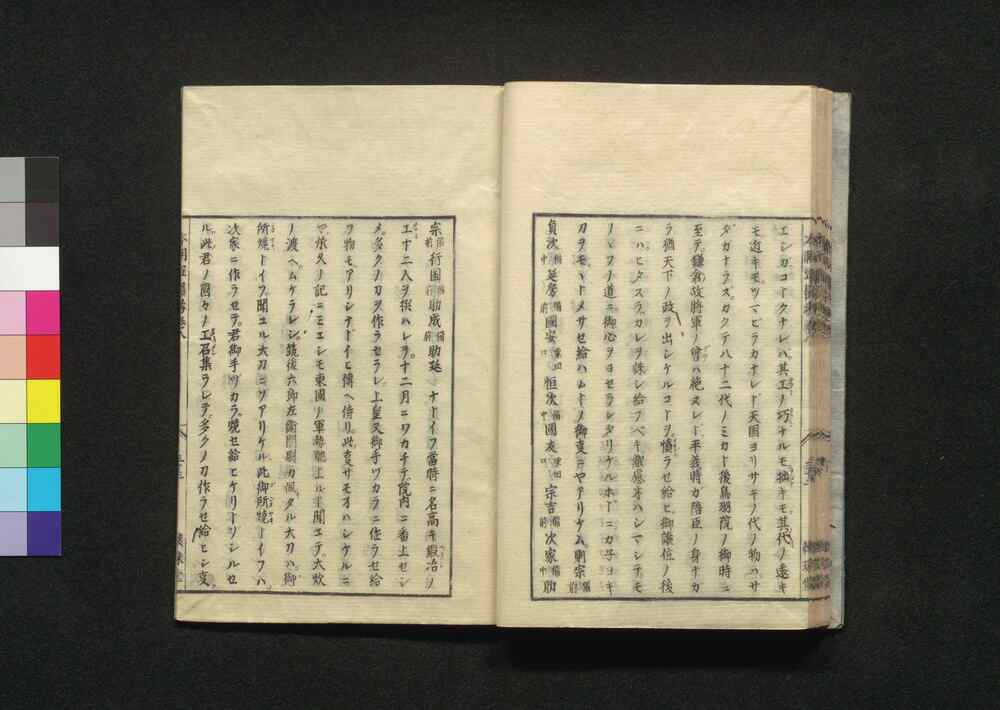 エシガコトクナレハ其工ノ巧ナルモ拙キモ其代ノ遠キ
モ近キモツマビラカナレド天国ヨリサキノ代ノ物ハサ
ダカナラズカクテ八十二代ノミカド後鳥羽院ノ御時ニ
至テ鎌倉故将軍ノ曾ハ絶ヌレド平義時カ陪臣ノ身ナガ
ラ猶天下ノ政ヲ出シケルコトヲ憤ラセ給ヒ御譲位ノ後
ニハヒタスラカレヲ誅シ給フベキ叡慮オハシマシテモ
ノヽフノ道ニ御心ヲヨセラレタリケルホトニカチヨキ
刀ヲモトメサセ給ハムトノ御支ニヤアリケム則宗備前
貞次備中延房備前国安粟田口恒次備中国友粟田口宗吉備前次家備中助
宗備前行国備前助成備前助延ナトイフ當時ニ名高キ鍛冶ノ
エ十二人ヲ撰ハレテ十二月ニワカチテ院内ニ番上セシ
メ多クノ刀ヲ作ラセラレ上皇又御手ツカラニ作ラセ給
フ物モアリシナドイヒ傳ヘ侍リ此支サモオハシケルニ
ヤ承久ノ記ニミエシモ東國ノ軍勢馳上ルト聞エテ大政
ノ渡ヘムケラレシ鏡後六郎左衛門尉カ佩タル大刀ハ御
所焼トイフ聞ユル大刀ニソアリケル此御所焼トイフハ
次家ニ作ラセテ君御手ヅカラ焼セ給ヒケリトゾシルセ
ル此君ノ國々ノ工召集ラレテ多クノ刀作ラセ給ヒシ支